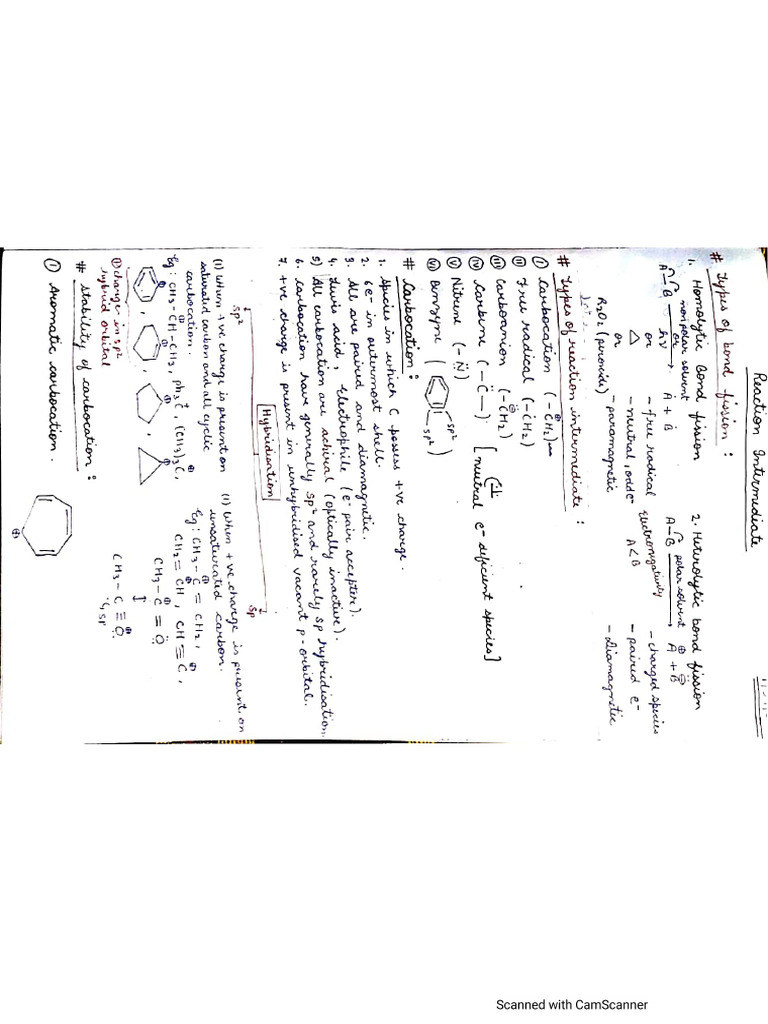 Reaction Intermediate
# Types of bond fission :
1. Homolytic Bond fission
nonpolar solvent
A—B → A + B
or
hν
or
△
or
R2O2 (peroxide)
- free radical
- neutral, odd e-
- paramagnetic
2. Heterolytic bond fission
polar solvent
A—B → A⊕ + B⊖
Electronegativity
A < B
- charged species
- paired e-
- Diamagnetic
# Types of reaction intermediate :
(i) Carbocation (-CH2)
(ii) Free radical (-ĊH2)
(iii) Carboanion (-CH2)
(iv) Carbene (-C̈-)
(v) Nitrene (-N̈)
[neutral e- deficient species]
(vi) Benzyne ( sp2 sp2 )
# Carbocation :
1. Species in which C possess +ve charge.
2. 6e- in outermost shell.
3. All are paired and diamagnetic.
4. Lewis acid, Electrophile (e- pair accepter).
5) All carbocation are achiral (optically inactive).
6. carbocation have generally sp2 and rarely sp hybridisation.
7. +ve charge is present in unhybridised vacant p-orbital.
Hybridisation
sp2
sp
(1) When +ve charge is present on
saturated carbon and all cyclic
carbocation.
Eg : CH3-CH⊕-CH3, Ph3C⊕, (CH3)3C⊕,
change in sp2
hybrid orbital
(1) When +ve charge is present on
unsaturated carbon.
Eg : CH3-C⊕=CH2,
CH2=CH⊕, CH≡C⊕,
CH3-C⊕=Ö
CH3-C≡O⊕
sp
# Stability of carbocation :
① Aromatic carbocation.
Scanned with CamScanner